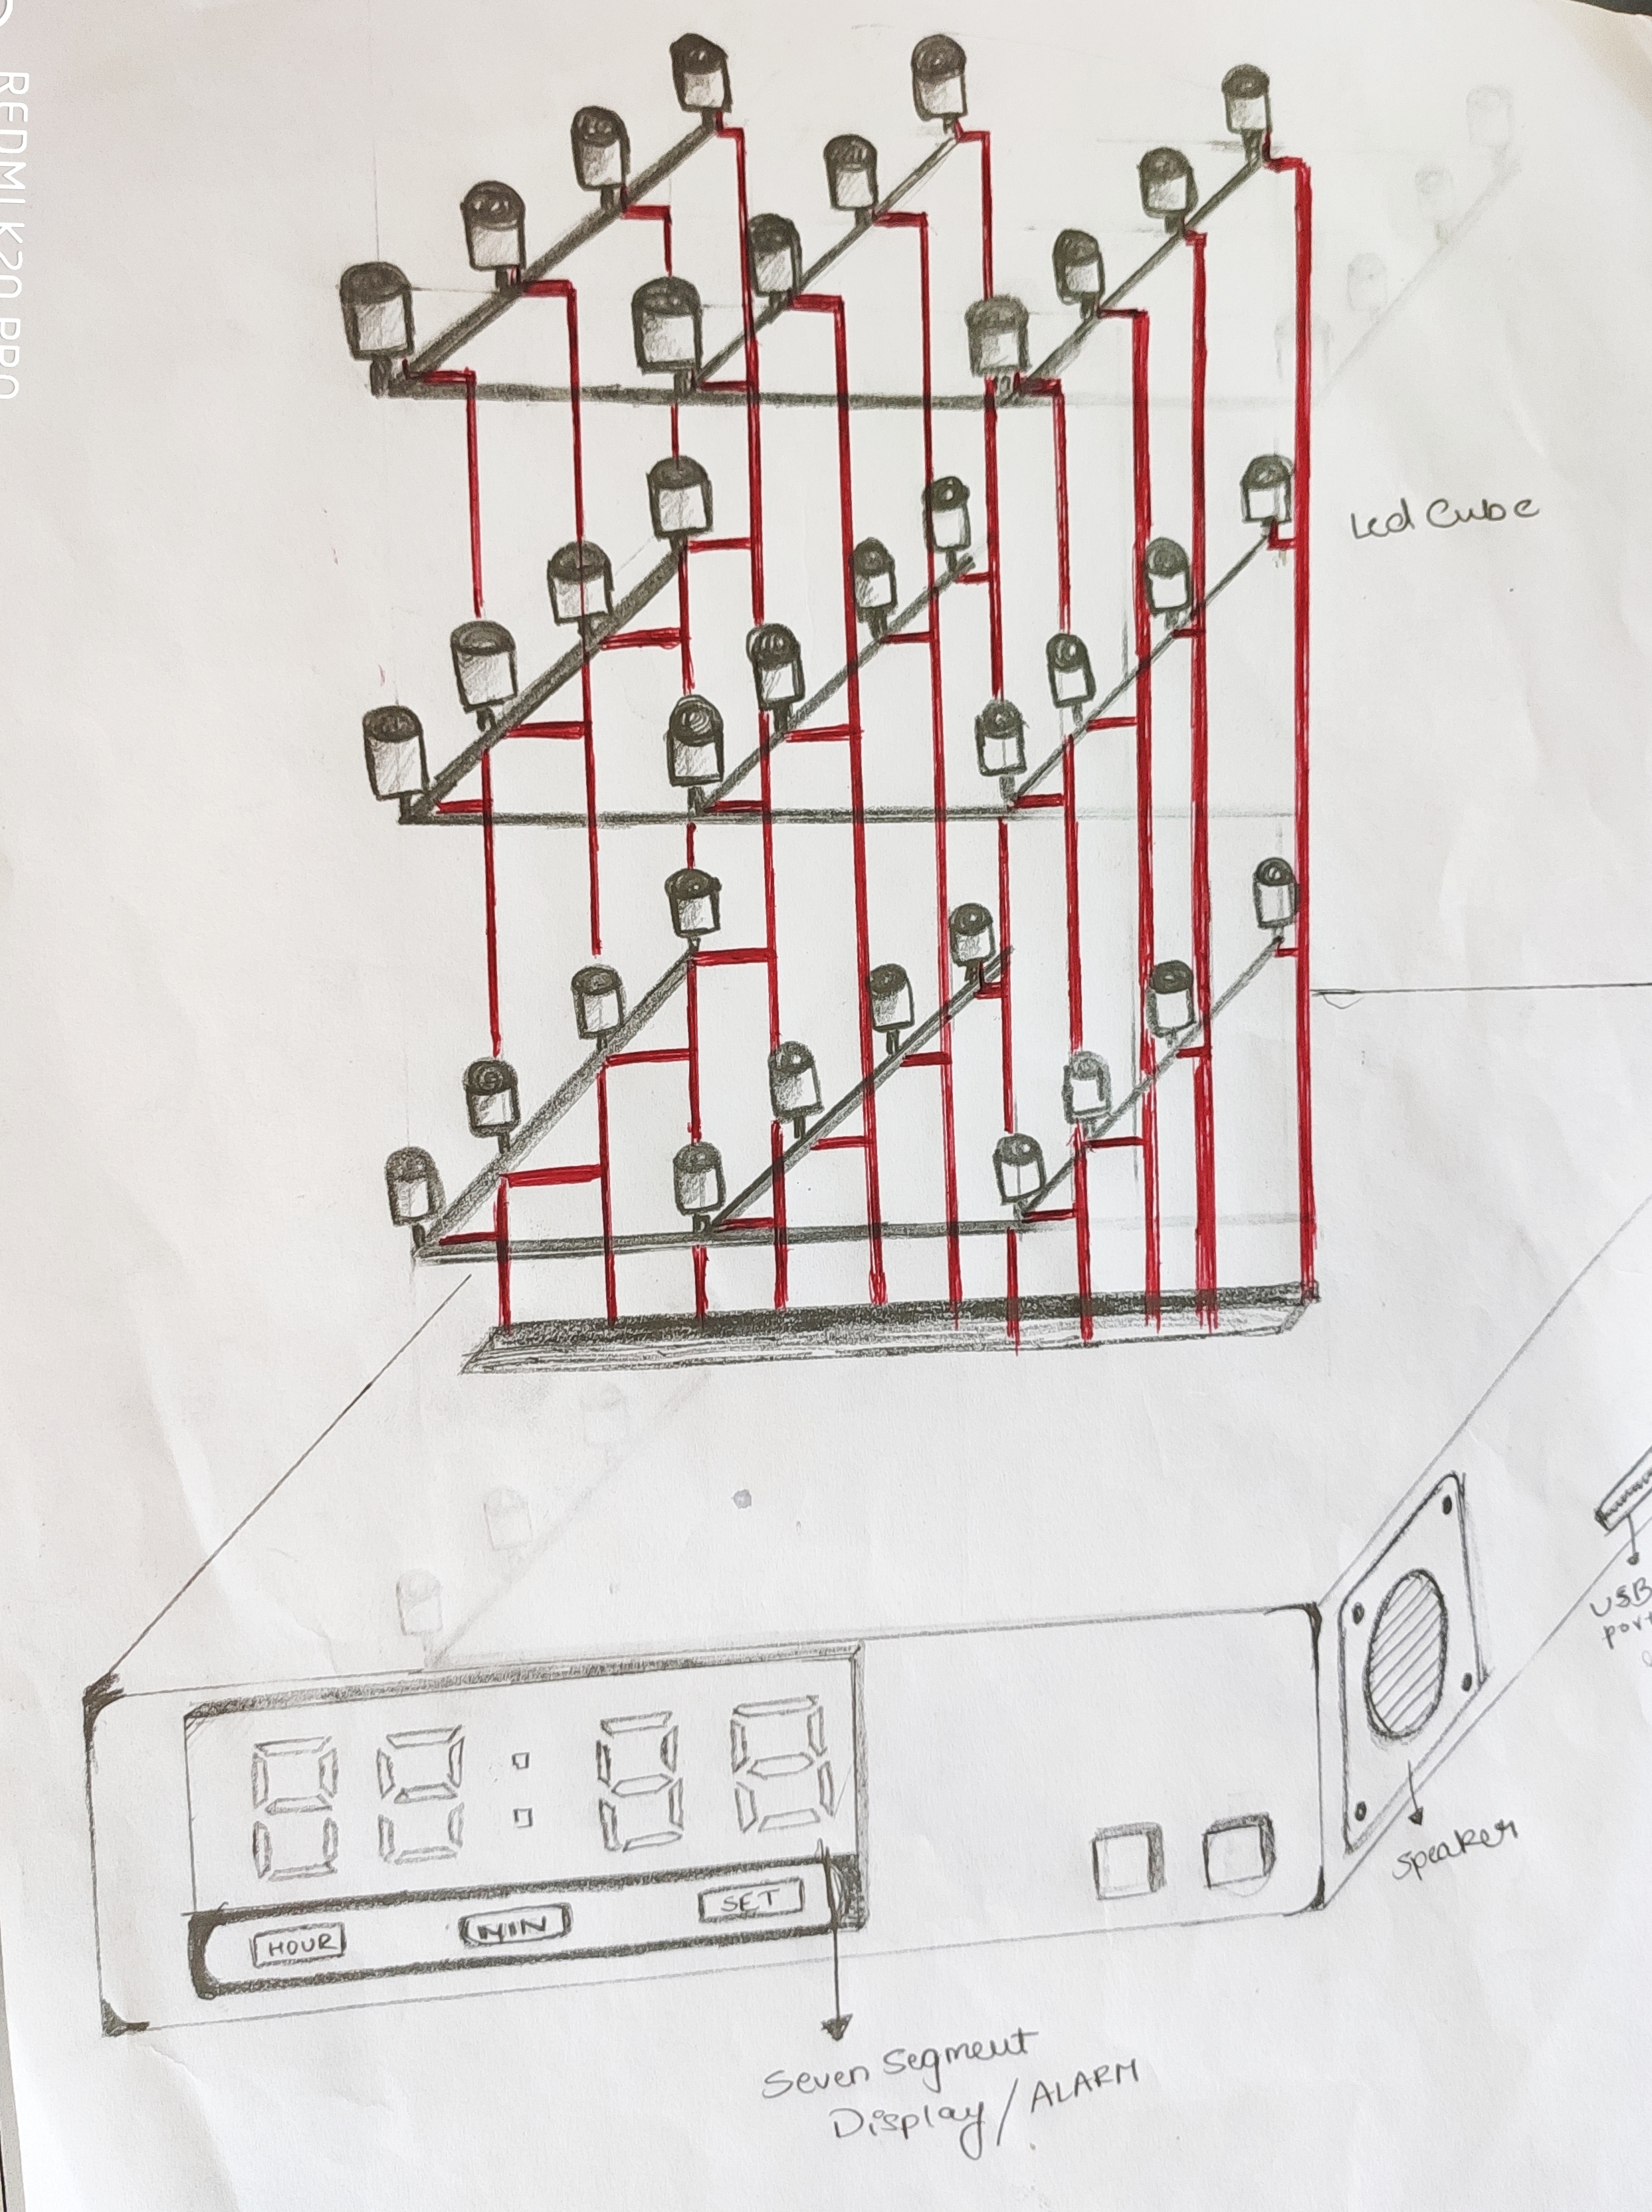 REDMI K20 PRO
Led Cube
USB
port
speaker
HOUR
MIN
SET
Seven Segment
Display / ALARM